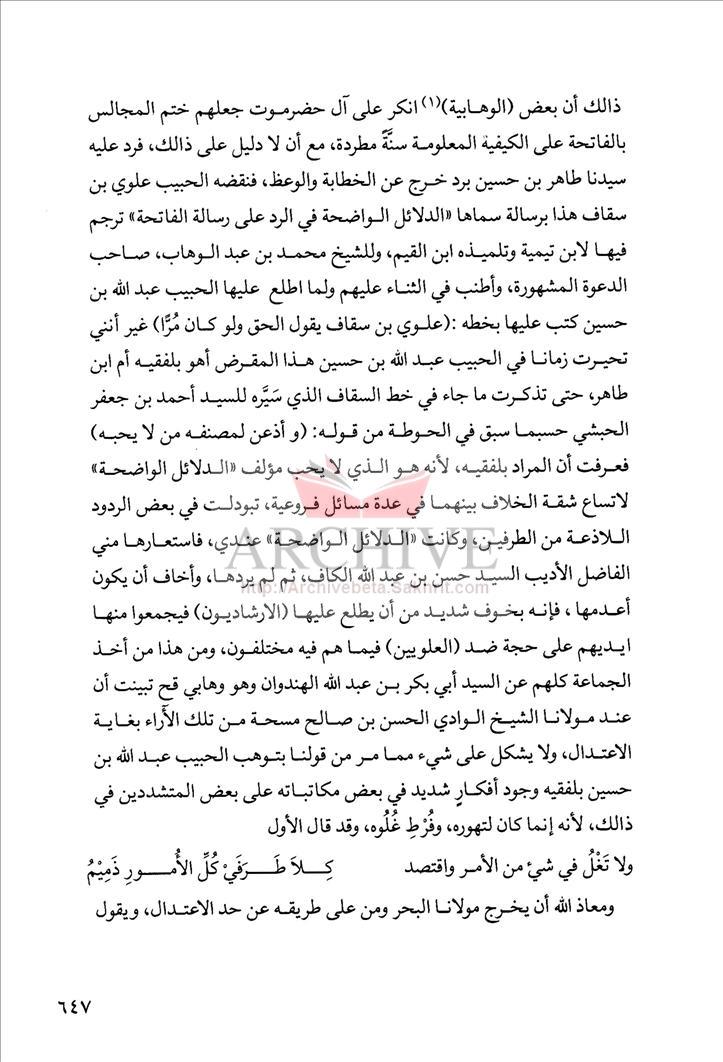 ذالك أن بعض (الوهابية)(١) انكر على آل حضرموت جعلهم ختم المجالس
بالفاتحة على الكيفية المعلومة سنَّةً مطردة، مع أن لا دليل على ذالك، فرد عليه
سيدنا طاهر بن حسين برد خرج عن الخطابة والوعظ، فنقضه الحبيب علوي بن
سقاف هذا برسالة سماها «الدلائل الواضحة في الرد على رسالة الفاتحة» ترجم
فيها لابن تيمية وتلميذه ابن القيم، وللشيخ محمد بن عبد الوهاب، صاحب
الدعوة المشهورة، وأطنب في الثناء عليهم ولما اطلع عليها الحبيب عبد الله بن
حسين كتب عليها بخطه :(علوي بن سقاف يقول الحق ولو كان مُرًّا) غير أنني
تحيرت زمانا في الحبيب عبد الله بن حسين هذا المقرض أهو بلفقيه أم ابن
طاهر، حتى تذكرت ما جاء في خط السقاف الذي سَيَّره للسيد أحمد بن جعفر
الحبشي حسبما سبق في الحوطة من قوله: (و أذعن لمصنفه من لا يحبه)
فعرفت أن المراد بلفقيه، لأنه هو الذي لا يحب مؤلف «الدلائل الواضحة»
لاتساع شقة الخلاف بينهما في عدة مسائل فروعية، تبودلت في بعض الردود
اللاذعة من الطرفين، وكانت «الدلائل الواضحة» عندي، فاستعارها مني
الفاضل الأديب السيد حسن بن عبد الله الكاف، ثم لم يردها، وأخاف أن يكون
أعدمها ، فإنه بخوف شديد من أن يطلع عليها (الارشاديون) فيجمعوا منها
ايديهم على حجة ضد (العلويين) فيما هم فيه مختلفون، ومن هذا من أخذ
الجماعة كلهم عن السيد أبي بكر بن عبد الله الهندوان وهو وهابي قح تبينت أن
عند مولانا الشيخ الوادي الحسن بن صالح مسحة من تلك الأراء بغاية
الاعتدال، ولا يشكل على شيء مما مر من قولنا بتوهب الحبيب عبد الله بن
حسين بلفقيه وجود أفكارٍ شديد في بعض مكاتباته على بعض المتشددين في
ذالك، لأنه إنما كان لتهوره، وفُرْطِ غُلُوه، وقد قال الأول
ولا تَغْلُ في شئ من الأمر واقتصد كِلاَ طَرَفَيْ كُلِّ الأُمُورِ ذَمِيْمُ
ومعاذ الله أن يخرج مولانا البحر ومن على طريقه عن حد الاعتدال، ويقول
ARCHIVE
http://Archivebeta.Sakhrit.com
٦٤٧